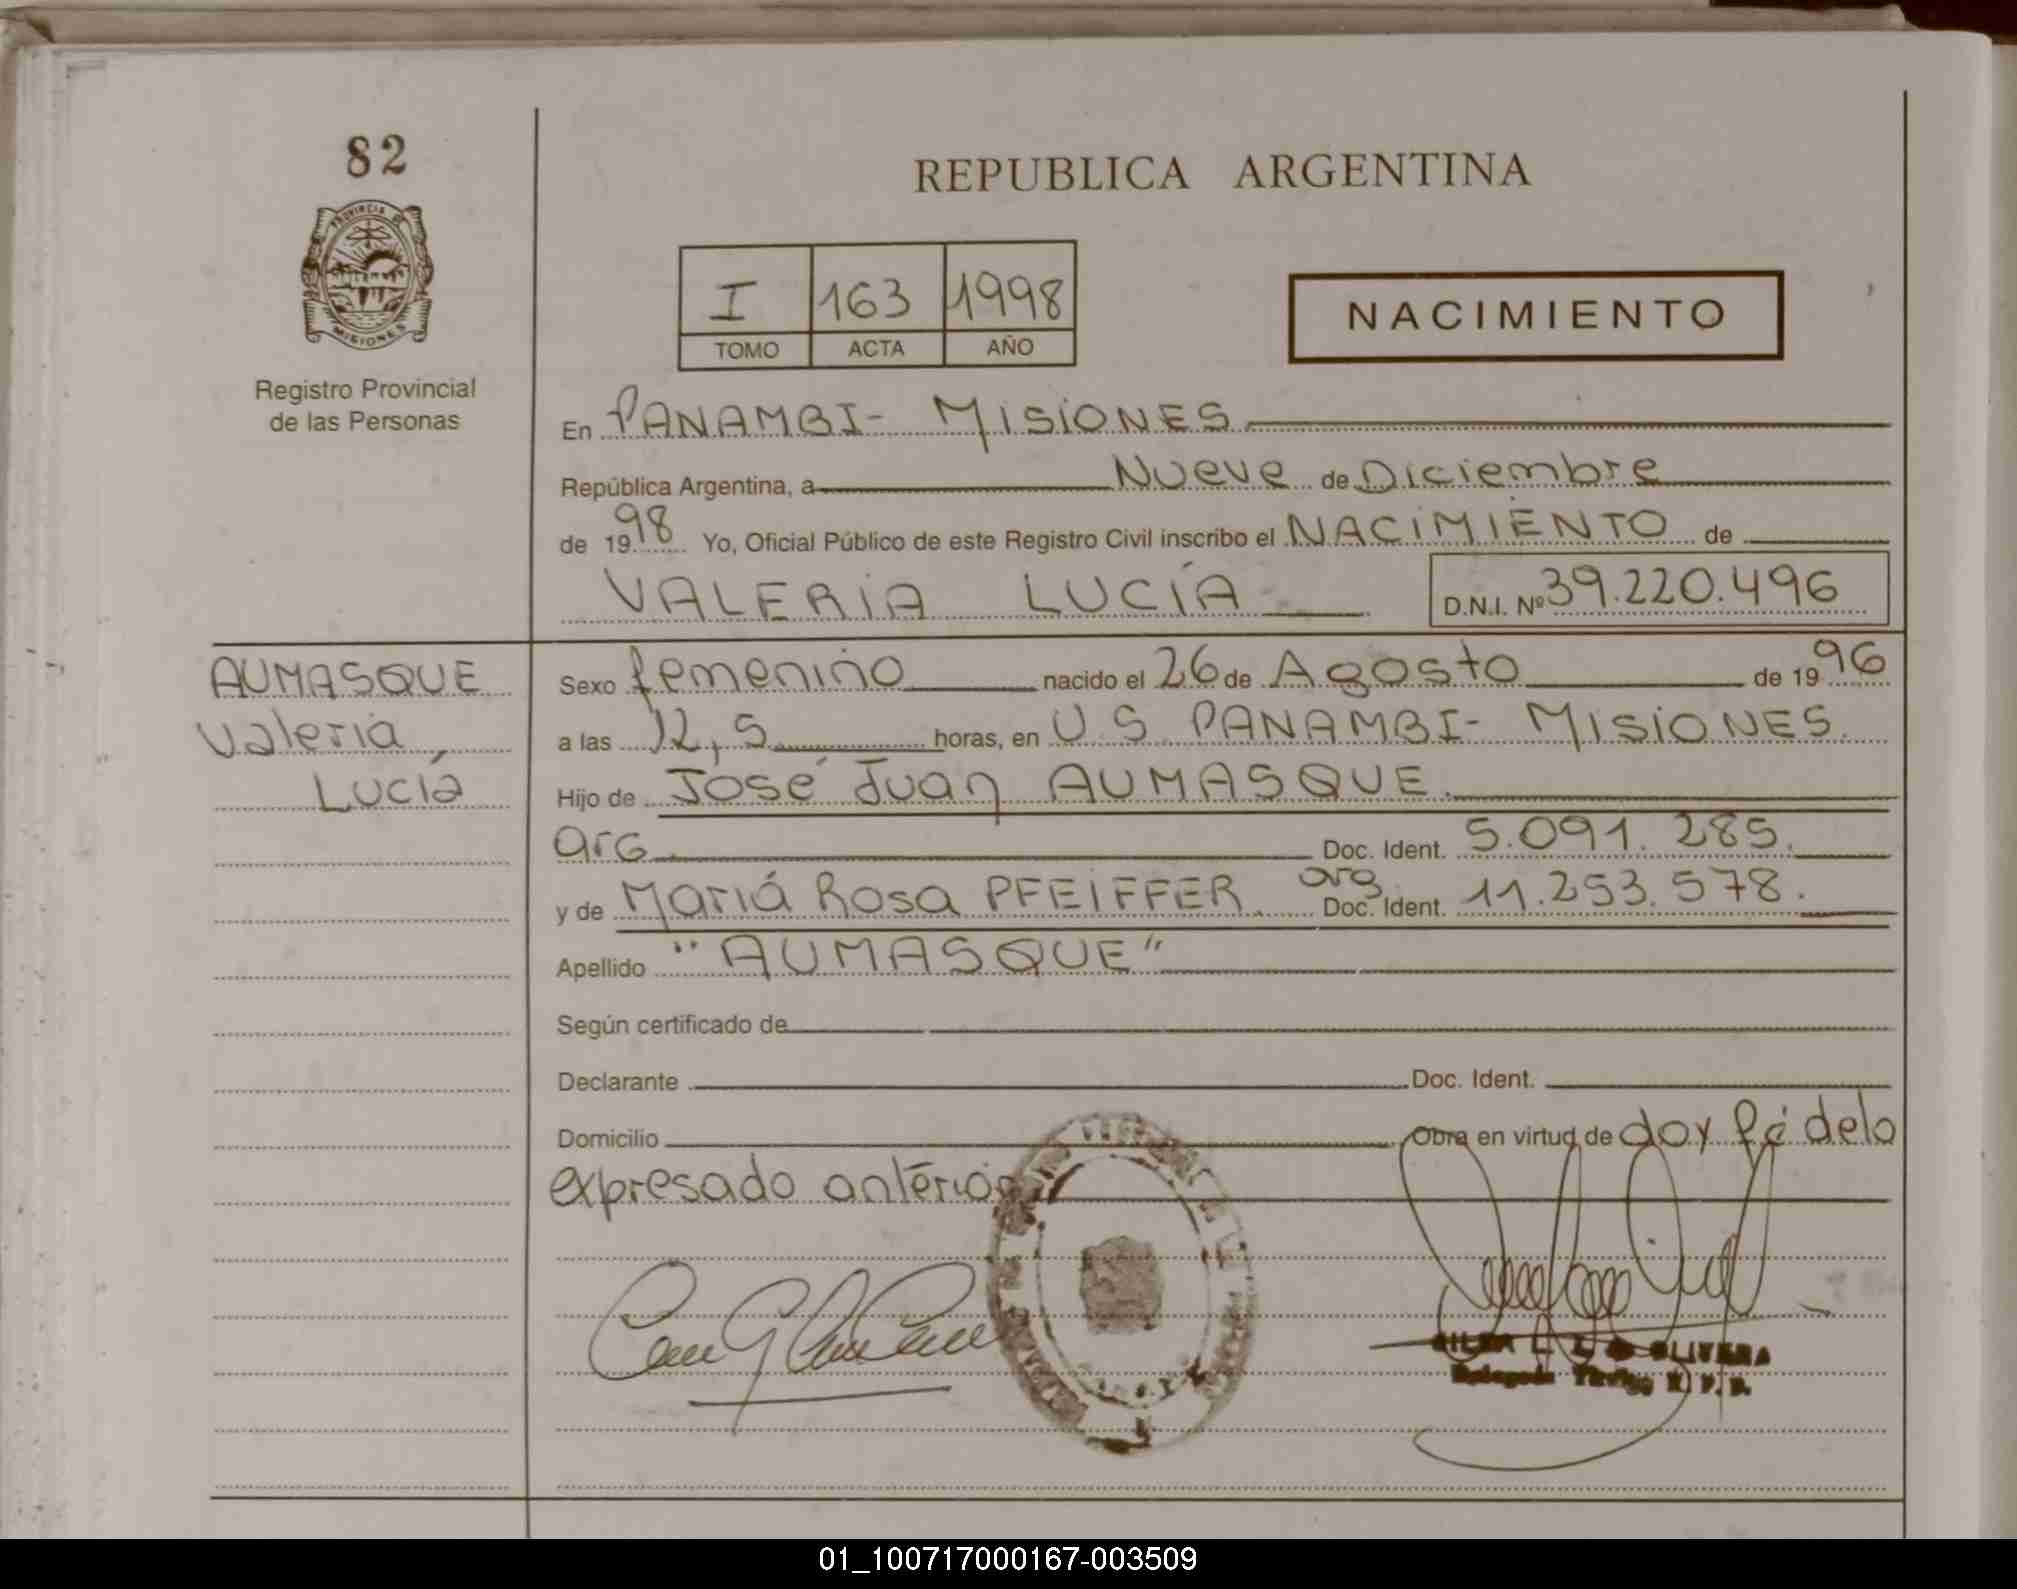 82
PROVINCIA DE
MISIONES
Registro Provincial
de las Personas
REPUBLICA ARGENTINA
I 163 1998
TOMO ACTA AÑO
NACIMIENTO
En PANAMBI- MISIONES
República Argentina, a Nueve de Diciembre
de 1998 Yo, Oficial Público de este Registro Civil inscribo el NACIMIENTO de
VALERIA LUCÍA D.N.I. Nº 39.220.496
AUMASQUE
Valeria,
Lucía
Sexo femenino nacido el 26 de Agosto de 1996
a las 12,5 horas, en U.S. PANAMBI- MISIONES
Hijo de José Juan AUMASQUE
arg. Doc. Ident. 5.091.285.
y de Mariá Rosa PFEIFFER arg. Doc. Ident. 11.253.578.
Apellido "AUMASQUE"
Según certificado de
Declarante Doc. Ident.
Domicilio Obra en virtud de doy fé delo
expresado anterior
OLIVERA
01_100717000167-003509